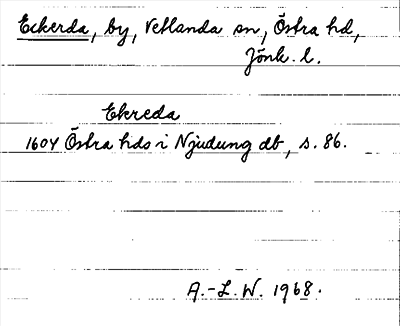 Eckerda, by, Vetlanda sn, Östra hd,
Jönk. l.
Ekreda
1604 Östra hds i Njudung db, s. 86.
A.-L. W. 1968.